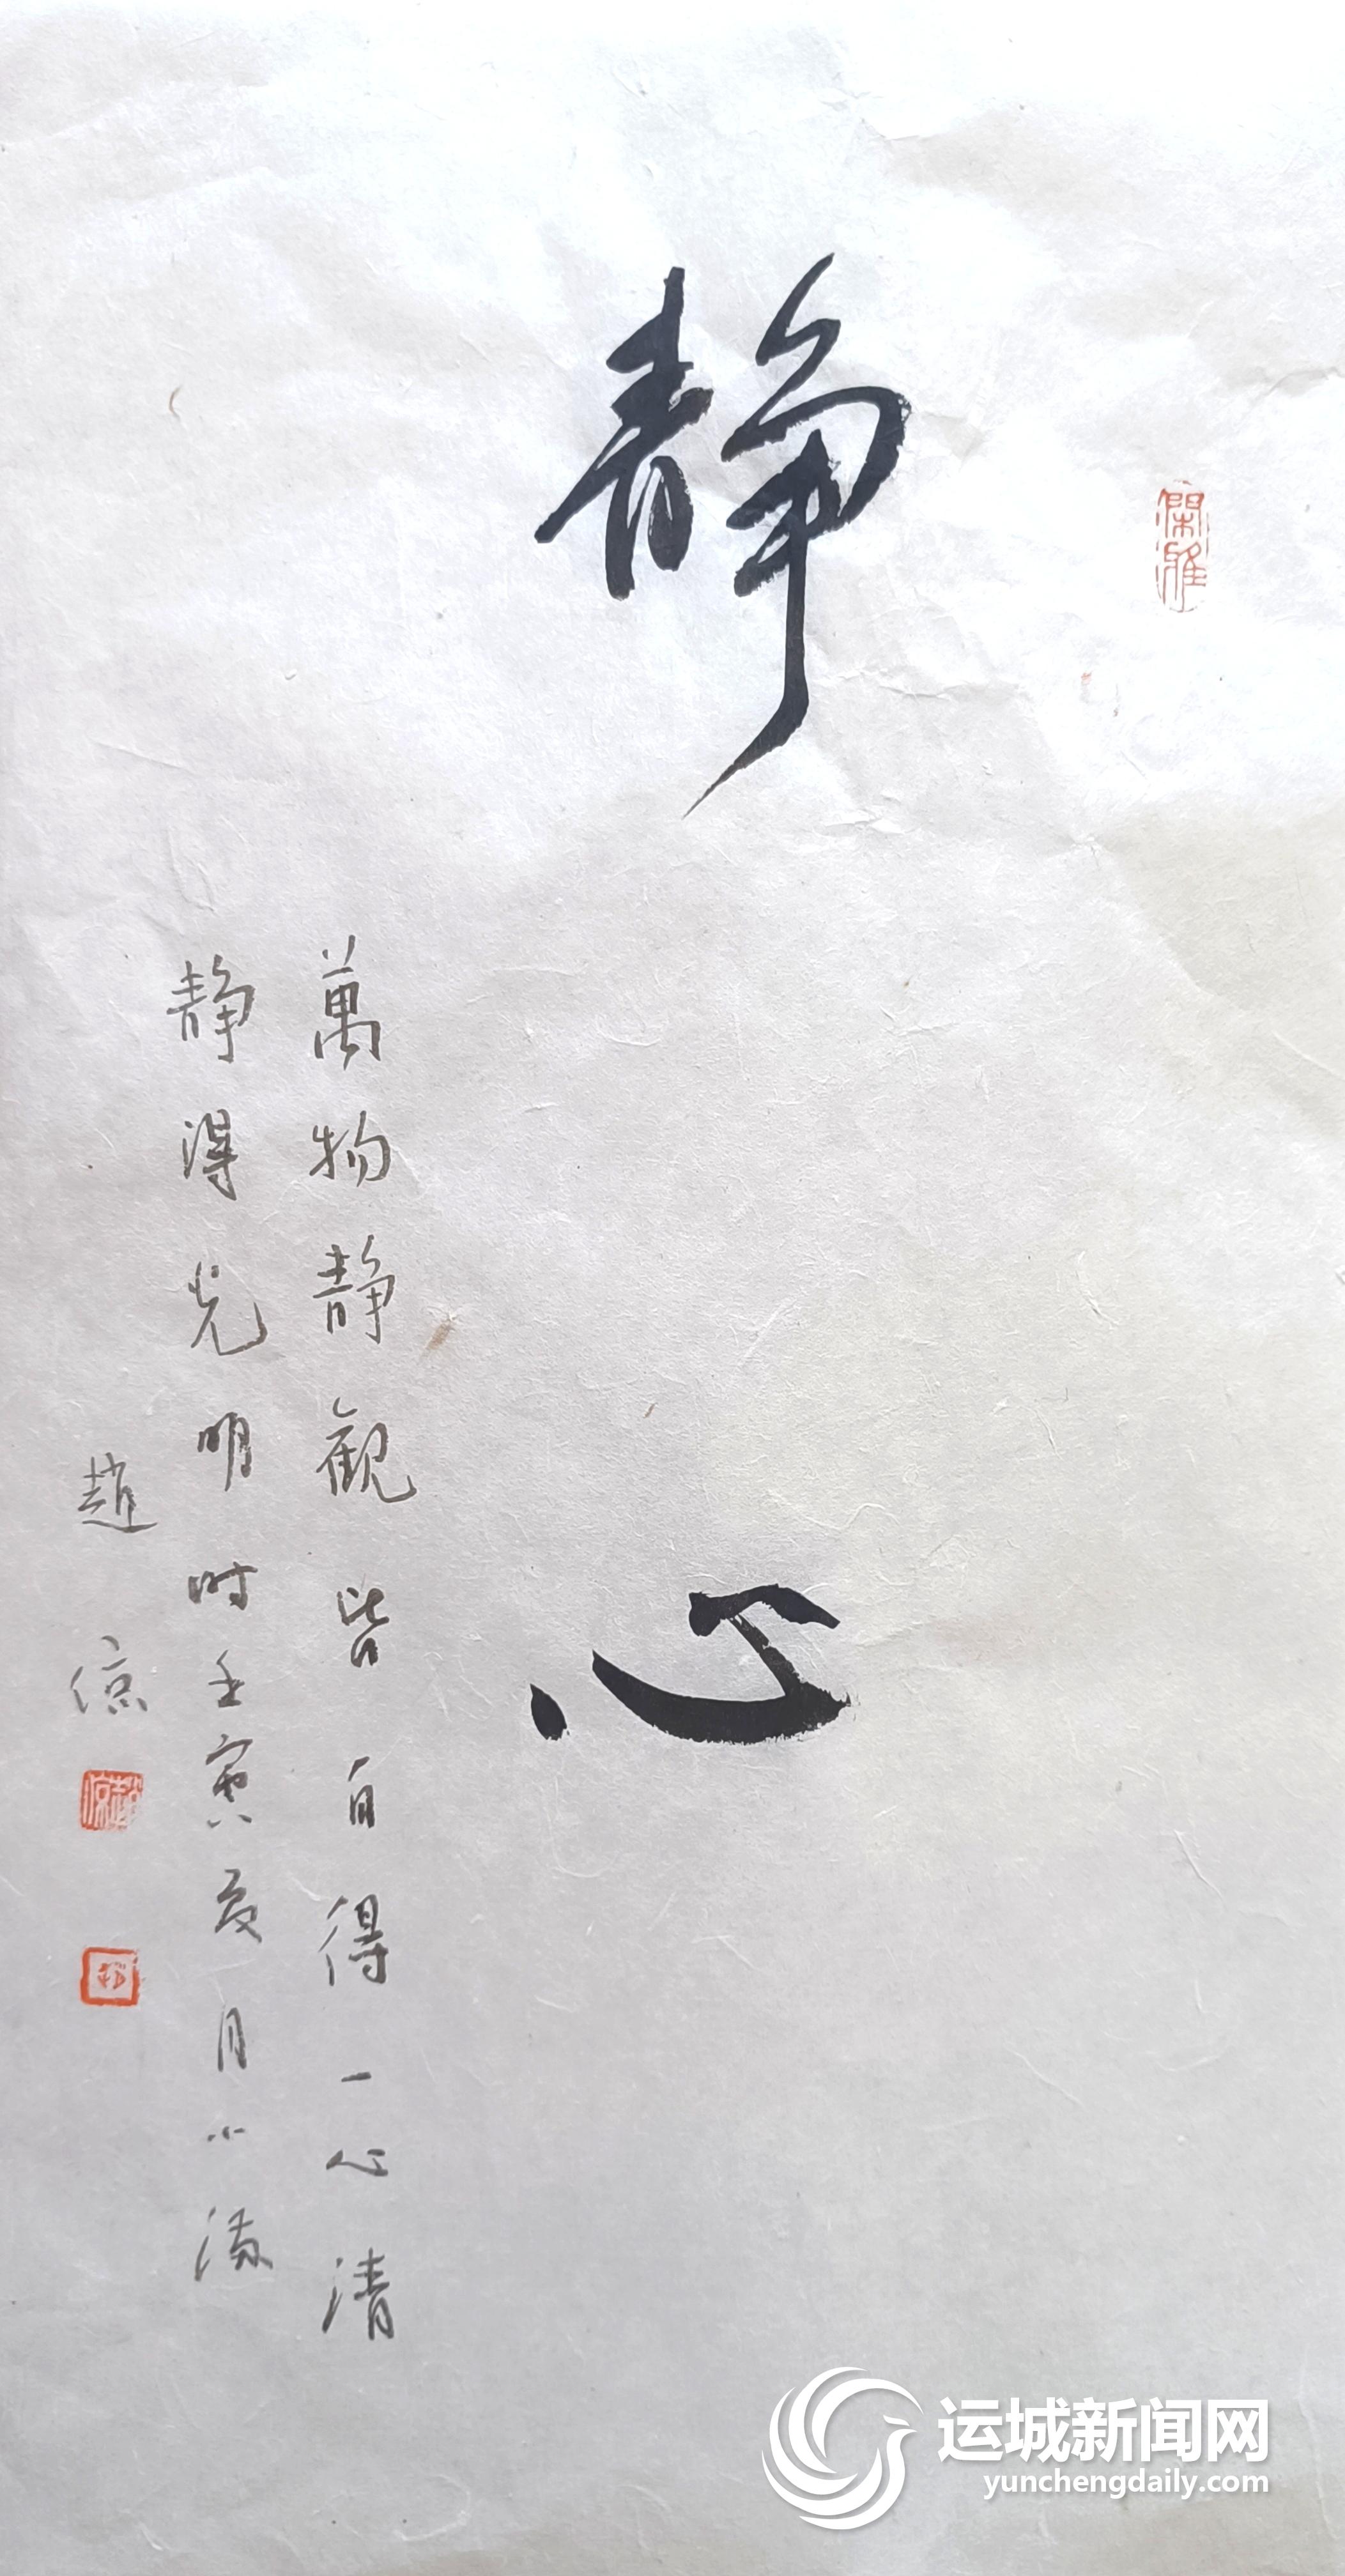 静心
萬物静觀皆自得一心清
静得光明时壬寅夏月小满
趙倞
閑雅
运城新闻网
yunchengdaily.com